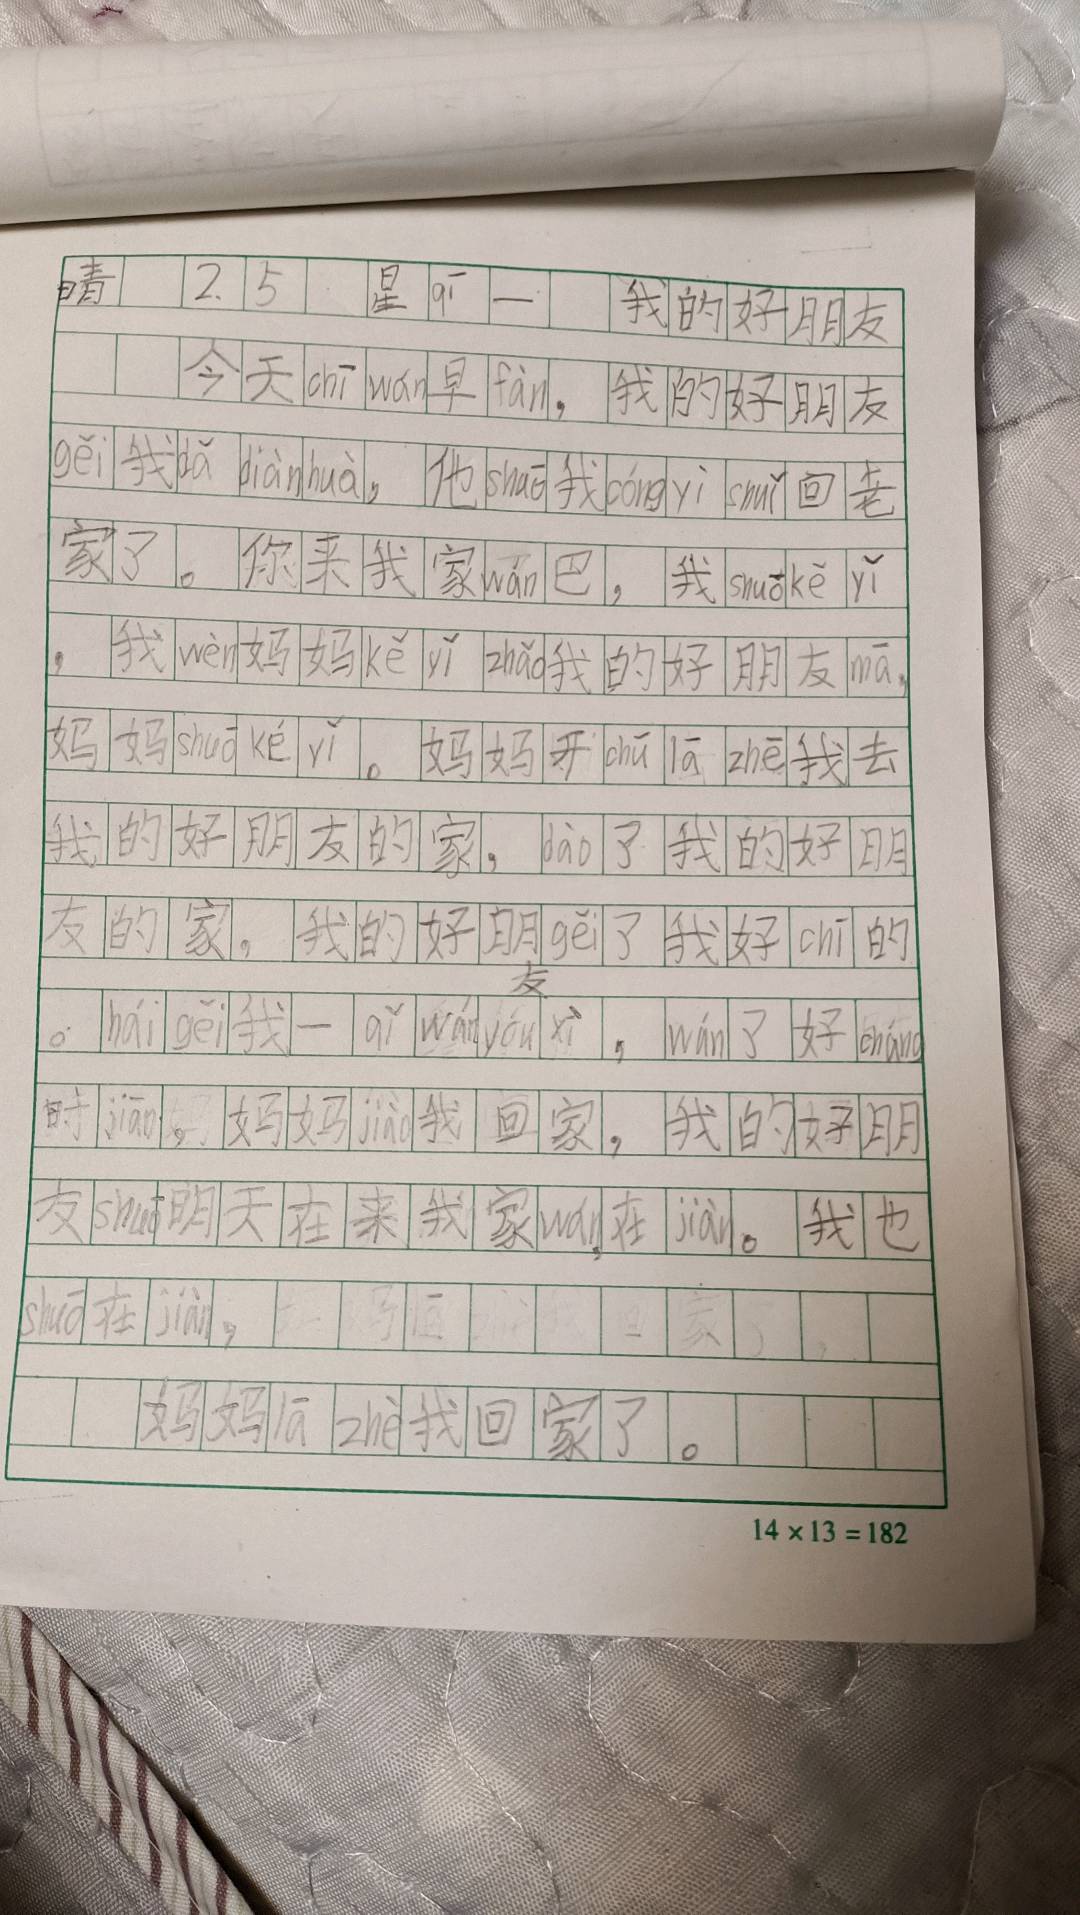 晴 2.5 星qī一 我的好朋友
今天chīwán早fàn，我的好朋友
gěi我dǎ diànhuà，他shuō我cóngyì shuǐ回老
家了。你来我家wán巴，我shuōkěyǐ
，我wèn妈妈kěyǐ zhǎo我的好朋友mā，
妈妈shuōkéyǐ。妈妈开chū lā zhē我去
我的好朋友的家，dào了我的好朋
友的家，我的好朋友gěi了我好chī的
。hái gěi我一qǐ wányóuxì，wán了好cháng
时jiān，妈妈jiào我回家，我的好朋
友shuō明天在来我家wán，在jiàn。我也
shuō在jiàn，
妈妈lā zhè我回家了。
14×13=182